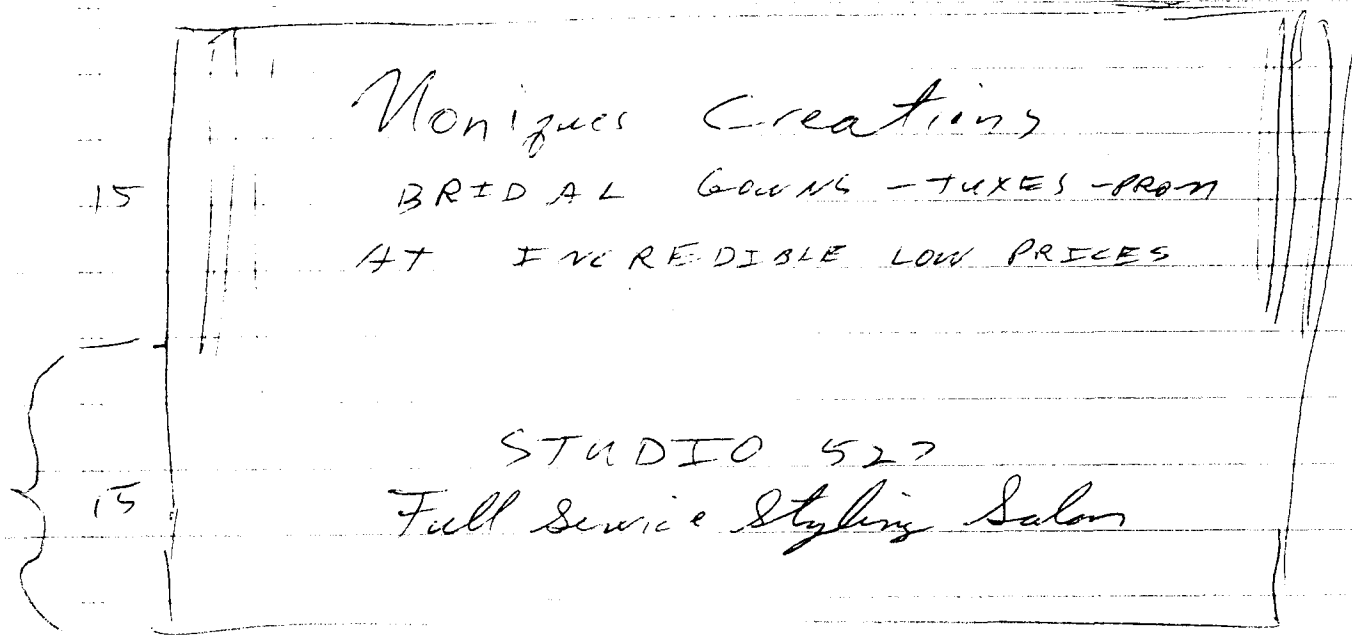 Moniques Creations
15 BRIDAL GOWNS - TUXES - PROM
AT INCREDIBLE LOW PRICES
STUDIO 527
15 Full Service Styling Salon